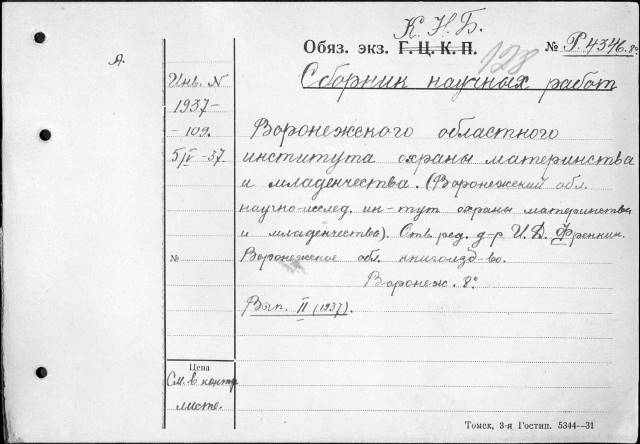 К. Н. Б.
Обяз. экз. Г. Ц. К. П. № Р. 4346. 8º
128
А.
Сборник научных работ
Инв. N
1937-
-109.
5/V-37.
Воронежского областного
института охраны материнства
и младенчества. (Воронежский обл.
научно-исслед. ин-тут охраны материнства
и младенчества). Отв. ред. д-р И. Д. Френкин.
№ Воронежское обл. книгоизд-во.
Воронеж. 8º
Вып. II (1937).
Цена
См. в контр.
листе.
Томск, 3-я Гостип. 5344—31